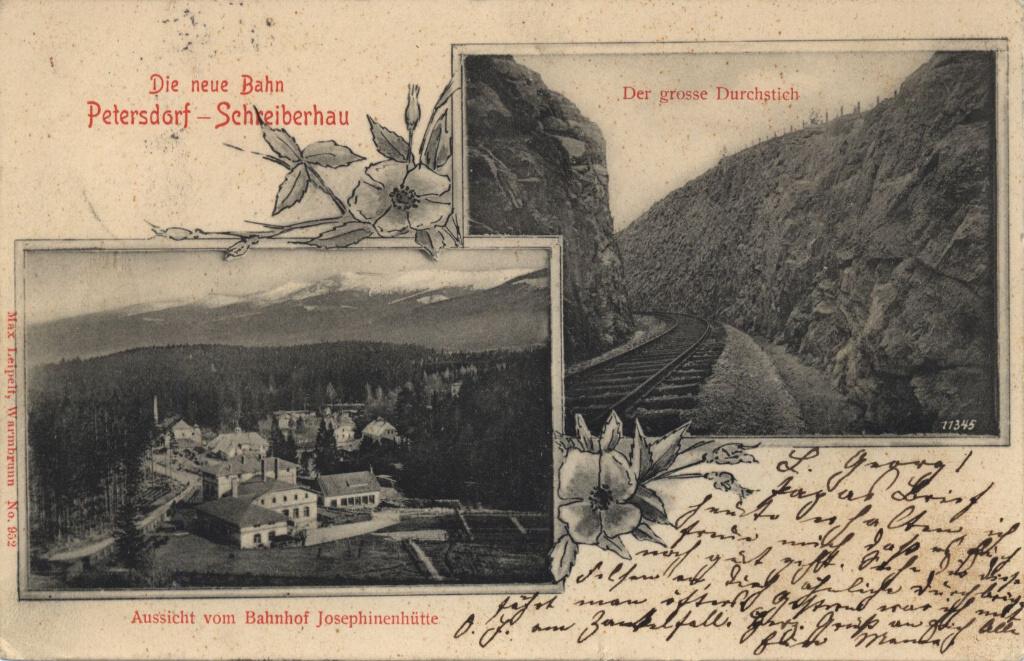 Die neue Bahn
Petersdorf – Schreiberhau
Der grosse Durchstich
11345
Max Leipelt, Warmbrunn No. 952
Aussicht vom Bahnhof Josephinenhütte
L. Georg!
Papas Brief
heute erhalten
freue mich daß es dir
noch gut geht. Siehe
Felsen ähnliche
fährt man öfters gestern war ich mit
O. J. am Zackelfall. Herz. Gruß an dich